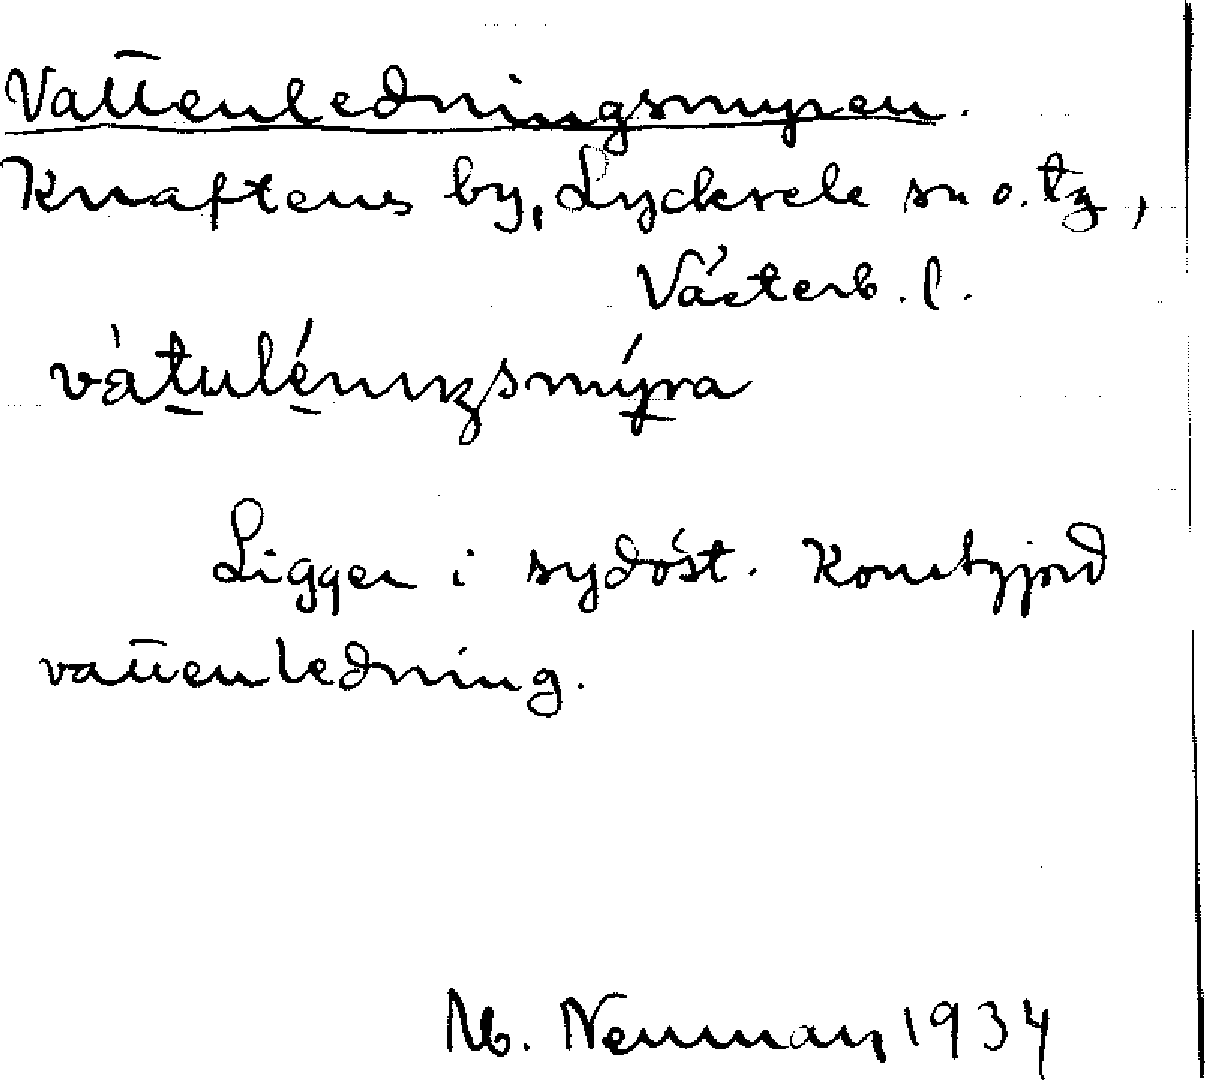 Vattenledningsmyren.
Knaftens by, Lycksele sn o. tg,
Västerb. l.
Ligger i sydöst. Konstgjord
vattenledning.
M. Neuman 1934